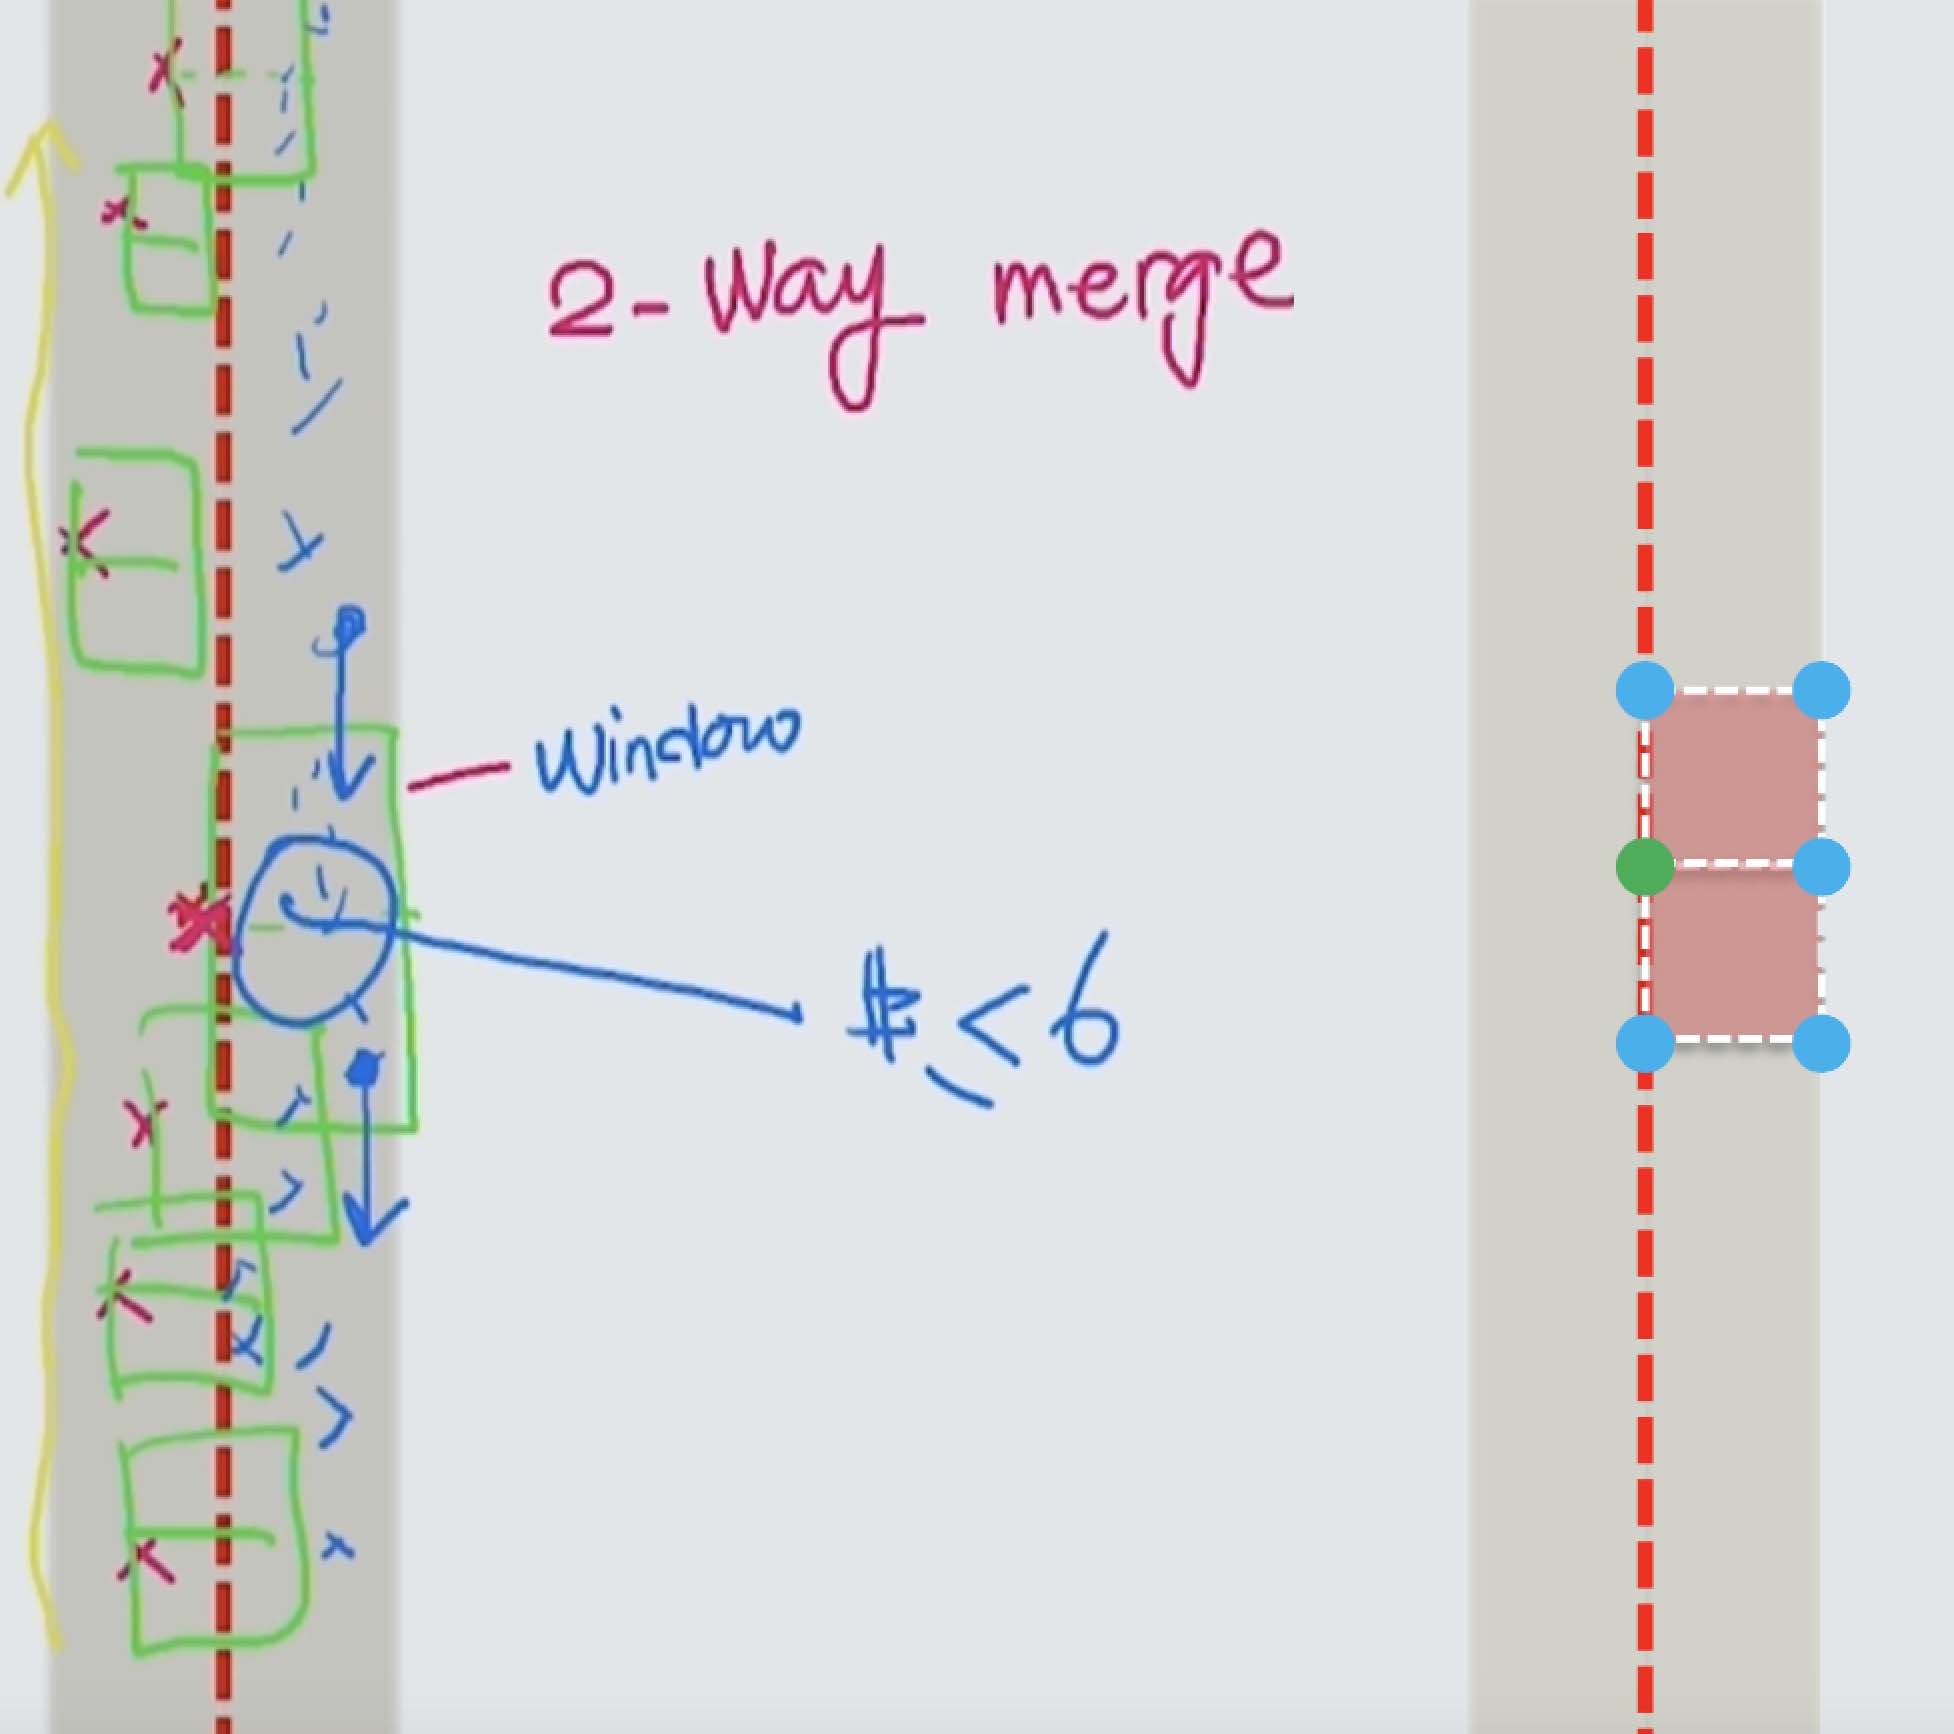 2-Way merge
Window
# ≤ 6